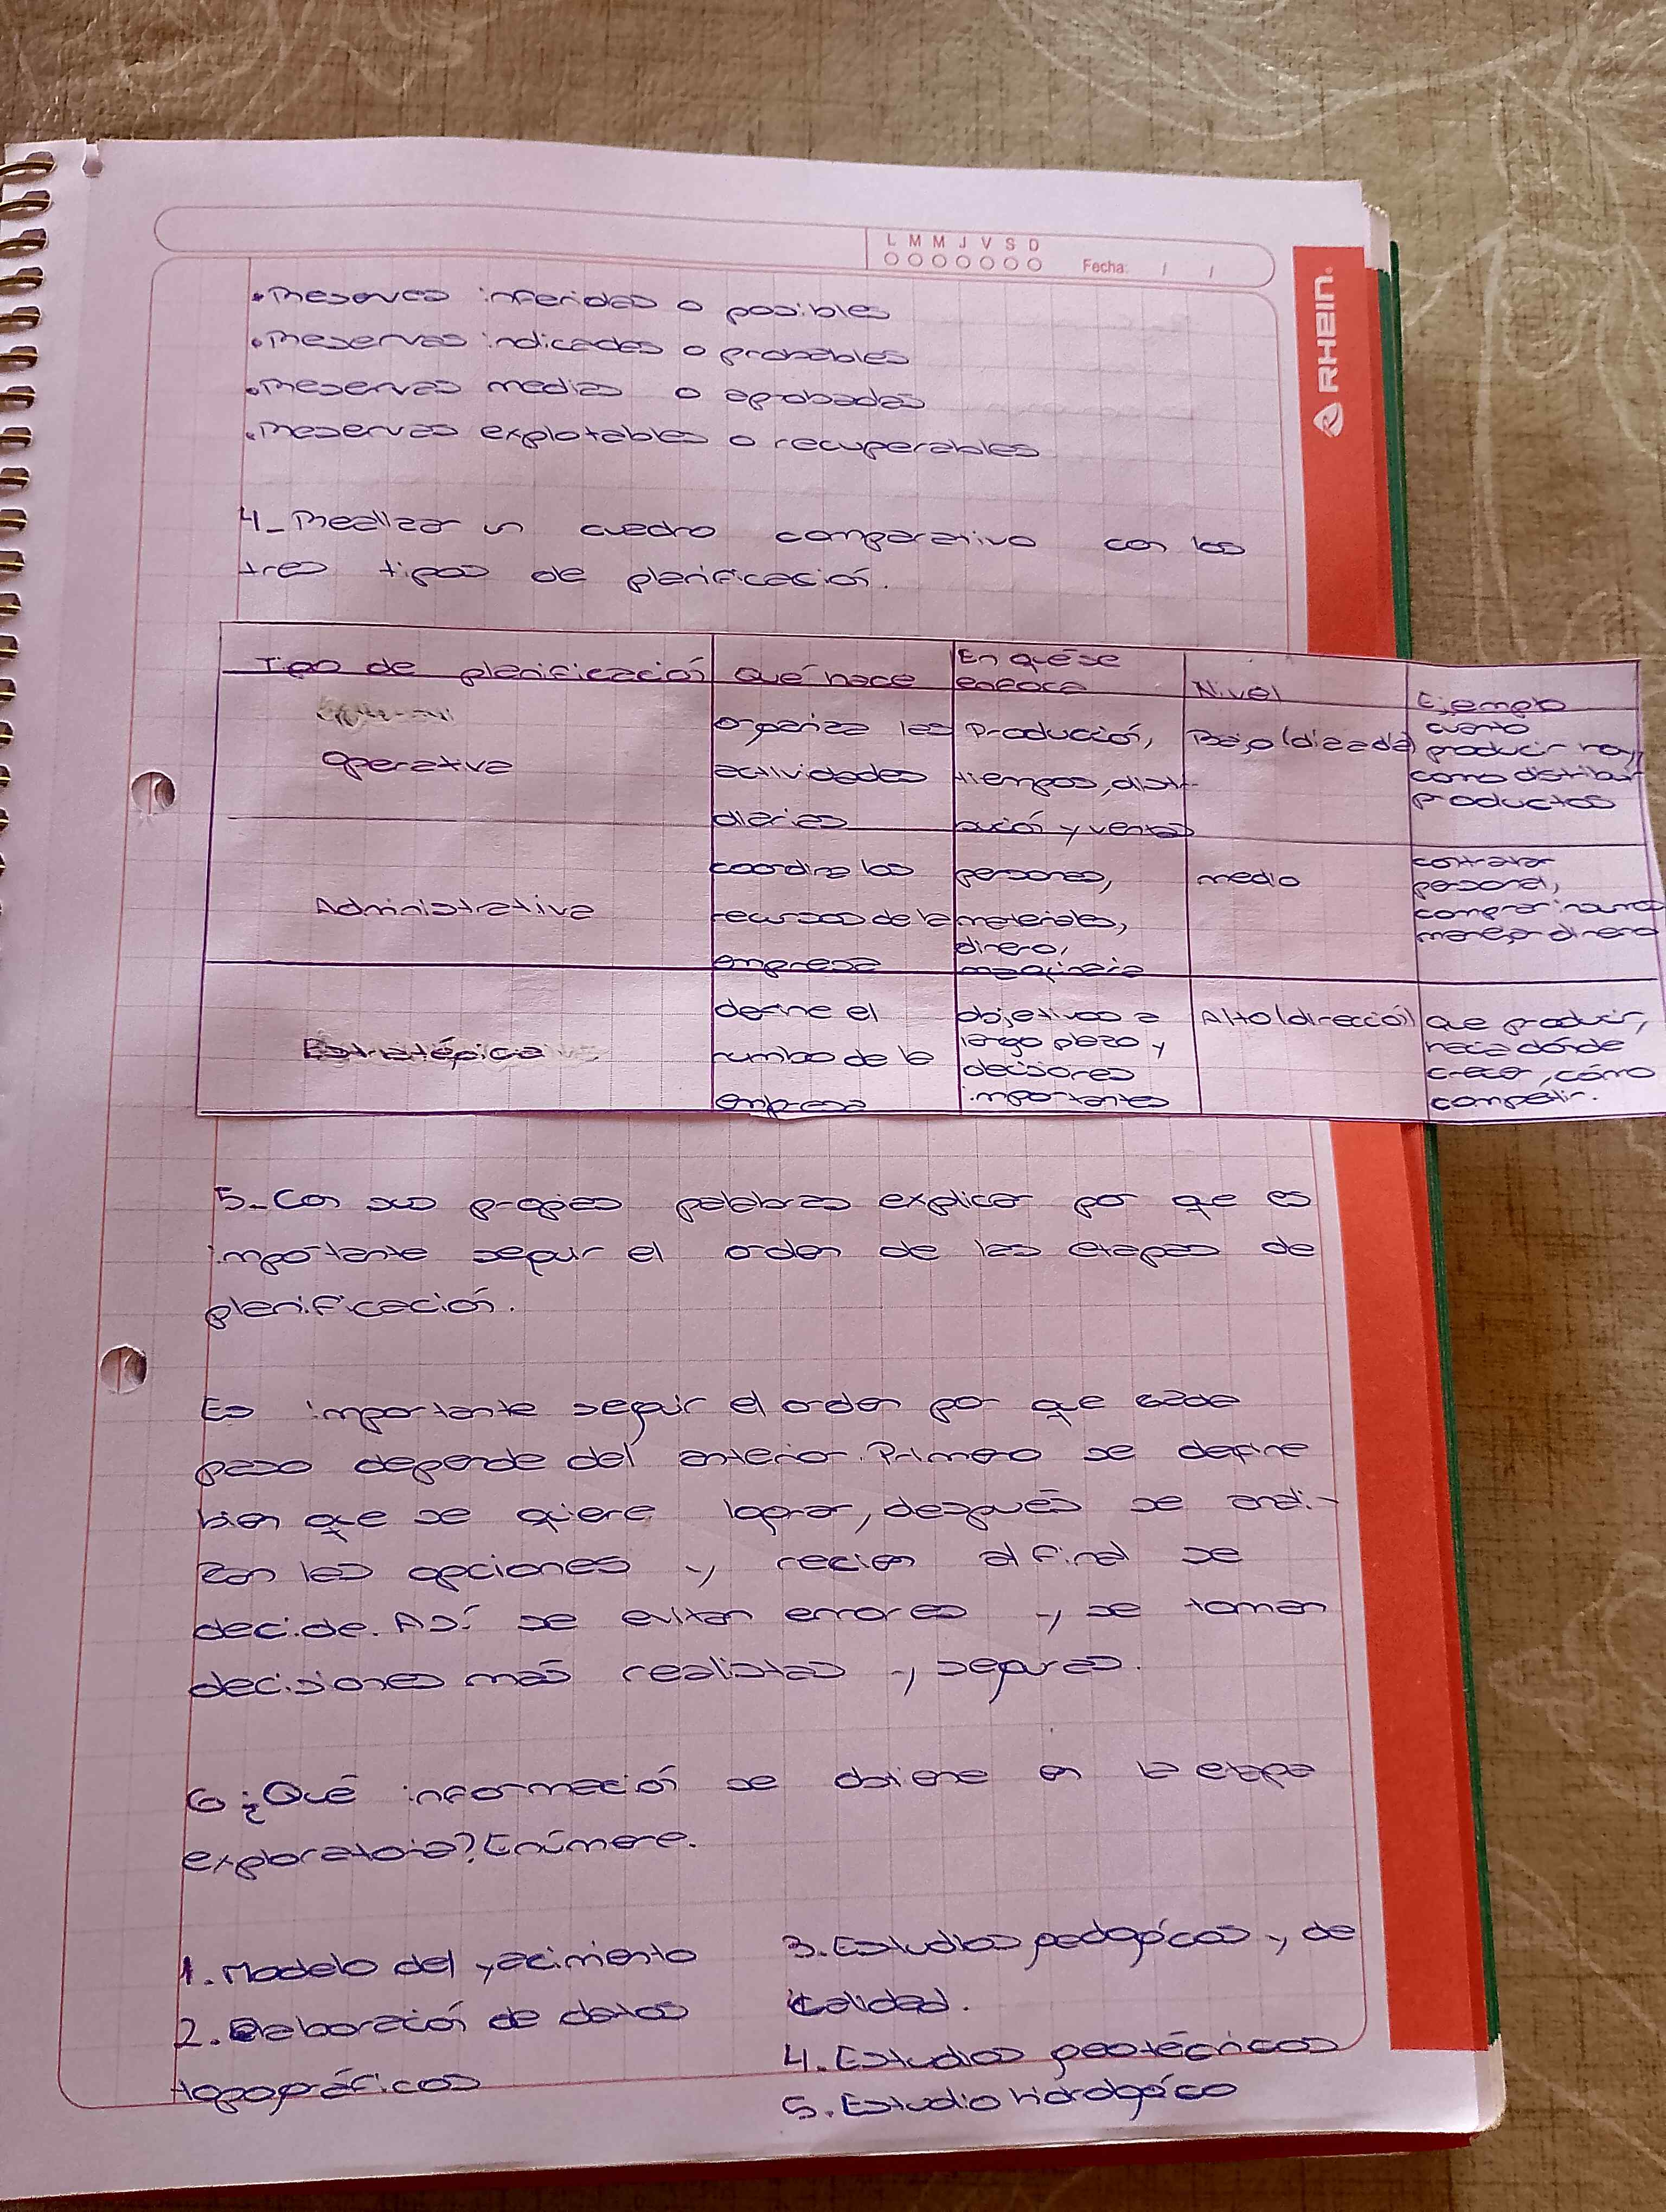 L M M J V S D
Fecha: / /
RHEIN
• Reservas inferidas o posibles
• Reservas indicadas o probables
• Reservas medias o aprobadas
• Reservas explotables o recuperables
4_ Realizar un cuadro comparativo con los
tres tipos de planificación.
Tipo de planificación Qué hace En qué se enfoca Nivel Ejemplo
Operativa organiza las actividades diarias Producción, tiempos, distribución y ventas Bajo (día a día) cuanto producir hoy, como distribuir productos
Administrativa coordina los recursos de la empresa personas, materiales, dinero, maquinaria medio contratar personal, comprar insumos manejar dinero
Estratégica define el rumbo de la empresa objetivos a largo plazo y decisiones importantes Alto (dirección) que producir, hacia dónde crecer, cómo competir.
5_ Con sus propias palabras explicar por que es
importante seguir el orden de las etapas de
planificación.
Es importante seguir el orden por que cada
paso depende del anterior. Primero se define
bien que se quiere lograr, después se anali-
zan las opciones y recien al final se
decide. Así se evitan errores y se toman
decisiones más realistas y seguras.
6 ¿Qué información se obtiene en la etapa
exploratoria? Enúmere.
1. Modelo del yacimiento
2. Elaboración de datos
topográficos
3. Estudios pedagógicos y de
calidad.
4. Estudios geotécnicos
5. Estudio hidrológico